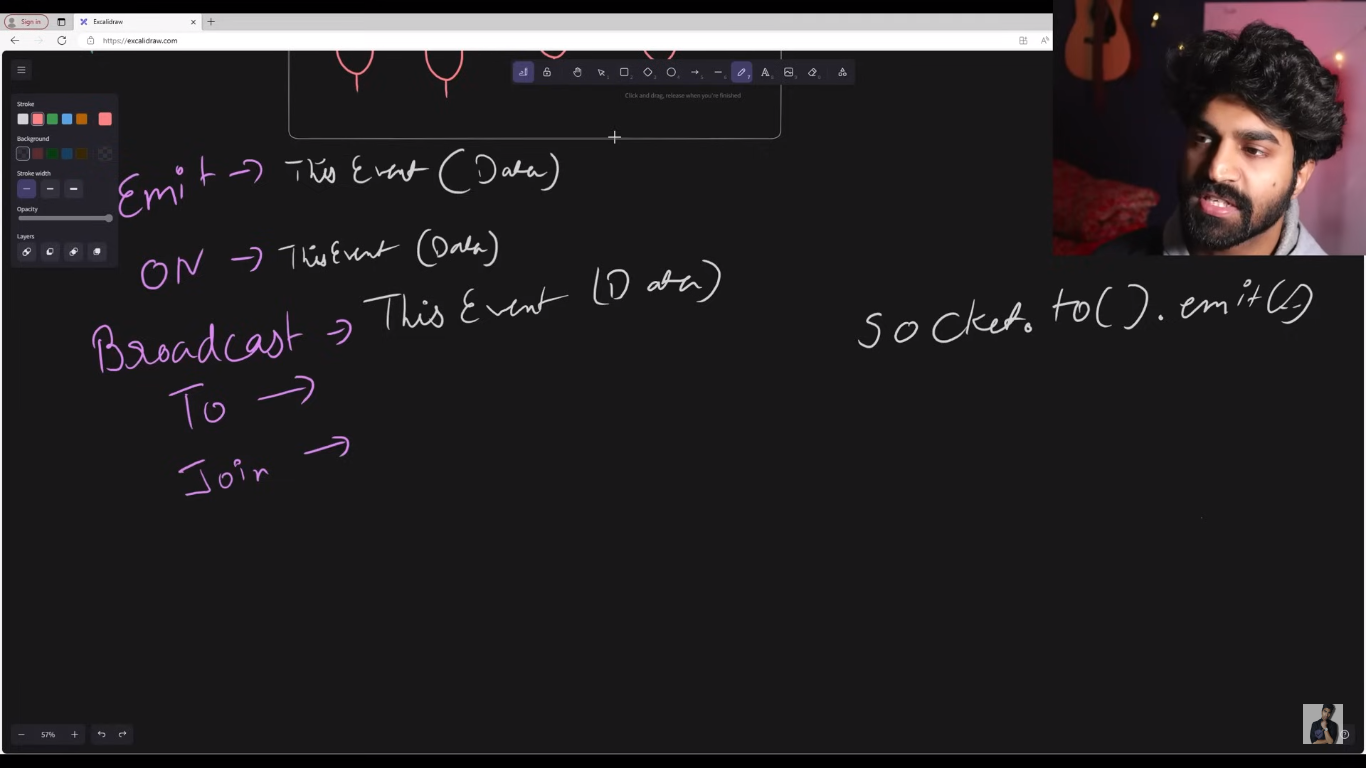 Sign in
Excalidraw
https://excalidraw.com
Click and drag, release when you're finished
Stroke
Background
Stroke width
Opacity
Layers
Emit → This Event (Data)
ON → This Event (Data)
Broadcast → This Event (Data)
Socket.to().emit()
To →
Join →
57%